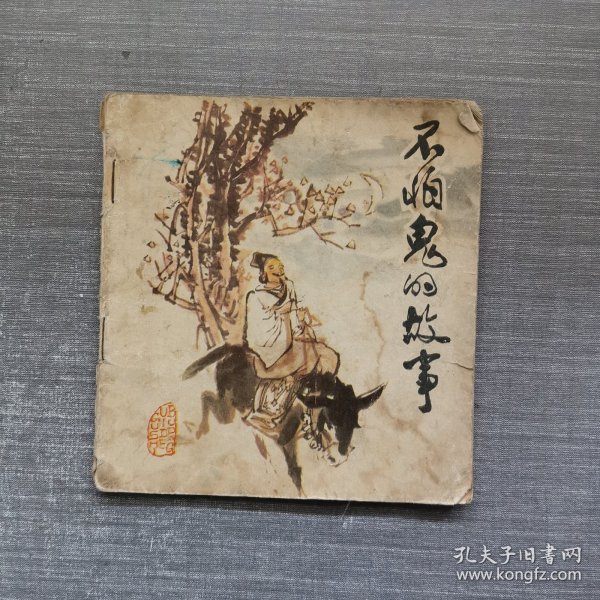 不怕鬼的故事
孔夫子旧書网
www.kongfz.com